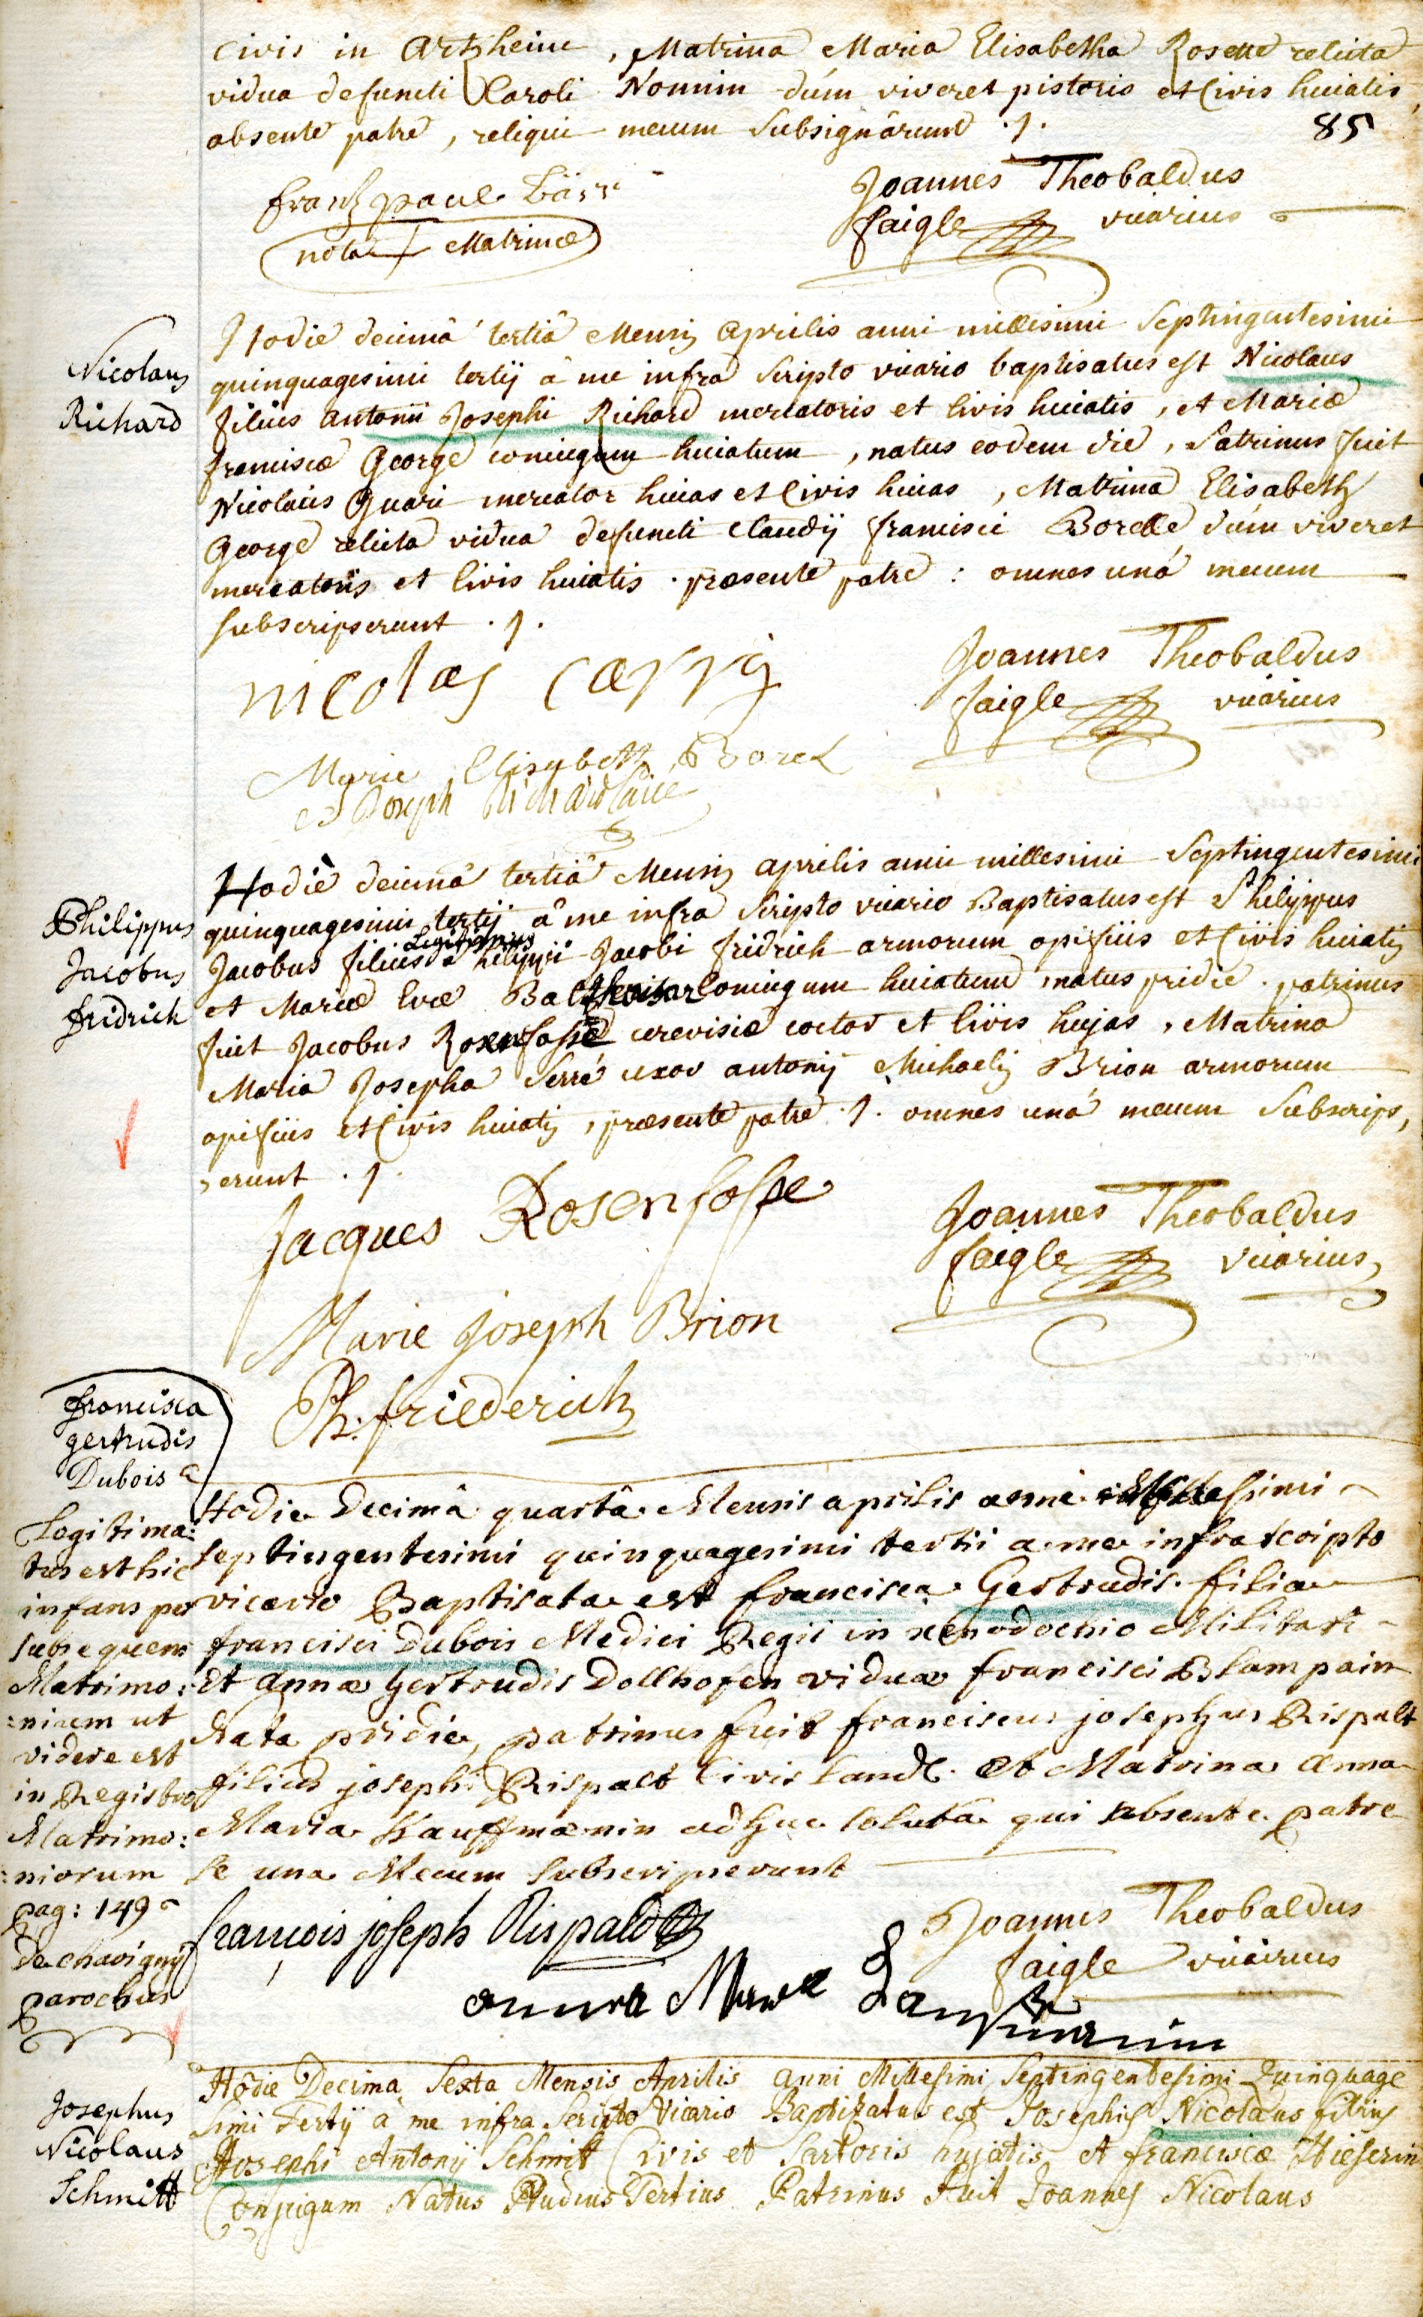 civis in Artzheim, Matrina Maria Elisabetha Rosette relicta
vidua defuncti Caroli Nonnin dúm viveret pistoris et Civis huiatis,
absente patre, reliqui mecum Subsignârunt .1.
85
frantz paul Bärr
nota + Matrinæ
Joannes Theobaldus
faigle vicarius
Nicolaus
Richard
Hodie decimâ tertiâ Mensis aprilis anni millesimi Septingentesimi
quinquagesimi tertij â me infra Scripto vicario baptisatus est Nicolaus
filius antonii Josephi Richard mercatoris et Civis huiatis, et Mariæ
franciscæ George coniugum huiatum, natus eodem die, Patrinus fuit
Nicolaus Quari mercator huias et Civis huias, Matrina Elisabeth
George relicta vidua defuncti Claudij francisci Borelle dúm viveret
mercatoris et Civis huiatis. præsente patre : omnes unâ mecum
subscripserunt .1.
nicolas
Marie Elisabeth Borel
Joseph Richard
Joannes Theobaldus
faigle vicarius
Philippus
Jacobus
fridrich
Hodiè decimâ tertiâ Mensis aprilis anni millesimi Septingentesimi
quinquagesimi tertij â me infra Scripto vicario Baptisatus est Philippus
Legitimus
Jacobus filius Philippi Jacobi fridrich armorum opificis et Civis huiatis
et Mariæ Evæ Balthasar Coniugum huiatum, natus pridie. patrinus
fuit Jacobus Rosenfosse cerevisiæ coctor et Civis hujas, Matrina
Maria Josepha Serré uxor antonij Michaelis Brion armorum
opificis et Civis huiatis, præsente patre .1. omnes unâ mecum Subscrips,
,erunt .1.
Jacques Rosenfosse
Marie Joseph Brion
Ph. friederich
Joannes Theobaldus
faigle vicarius,
francisca
gertrudis
Dubois
Legitima:
tus est hic
infans per
subsequens
Matrimo:
:nium ut
videre est
in Registro
Matrimo:
:niorum
pag: 149
de chavigny
parochus
Hodie Decimâ quartâ Mensis aprilis anni millesimi
septingentesimi quinquagesimi tertii a me infrascripto
vicario Baptisata est francisca Gertrudis filia
francisci Dubois Medici Regii in xenodochio Militari
Et Annæ Gertrudis Dollhofen viduæ francisci Blampain
Nata pridie, patrinus fuit franciscus josephus Rispalt
filius josephi Rispalt Civis Land. Et Matrina Anna
Maria Kauffmænin adhuc soluta qui absente patre
se una Mecum subscripserunt
françois joseph Rispald
Joannes Theobaldus
faigle vicairius
Josephus
Nicolaus
Schmitt
Hodie Decima Sexta Mensis Aprilis anni Millesimi Septingentesimi Quinquage
simi Tertij à me infra Scripto Vicario Baptizatus est Josephus Nicolaus filius
Josephi Antonij Schmit Civis et Sartoris hujatis et franciscæ Hieserin
Conjugum Natus Nudius Tertius Patrinus Fuit Joannes Nicolaus